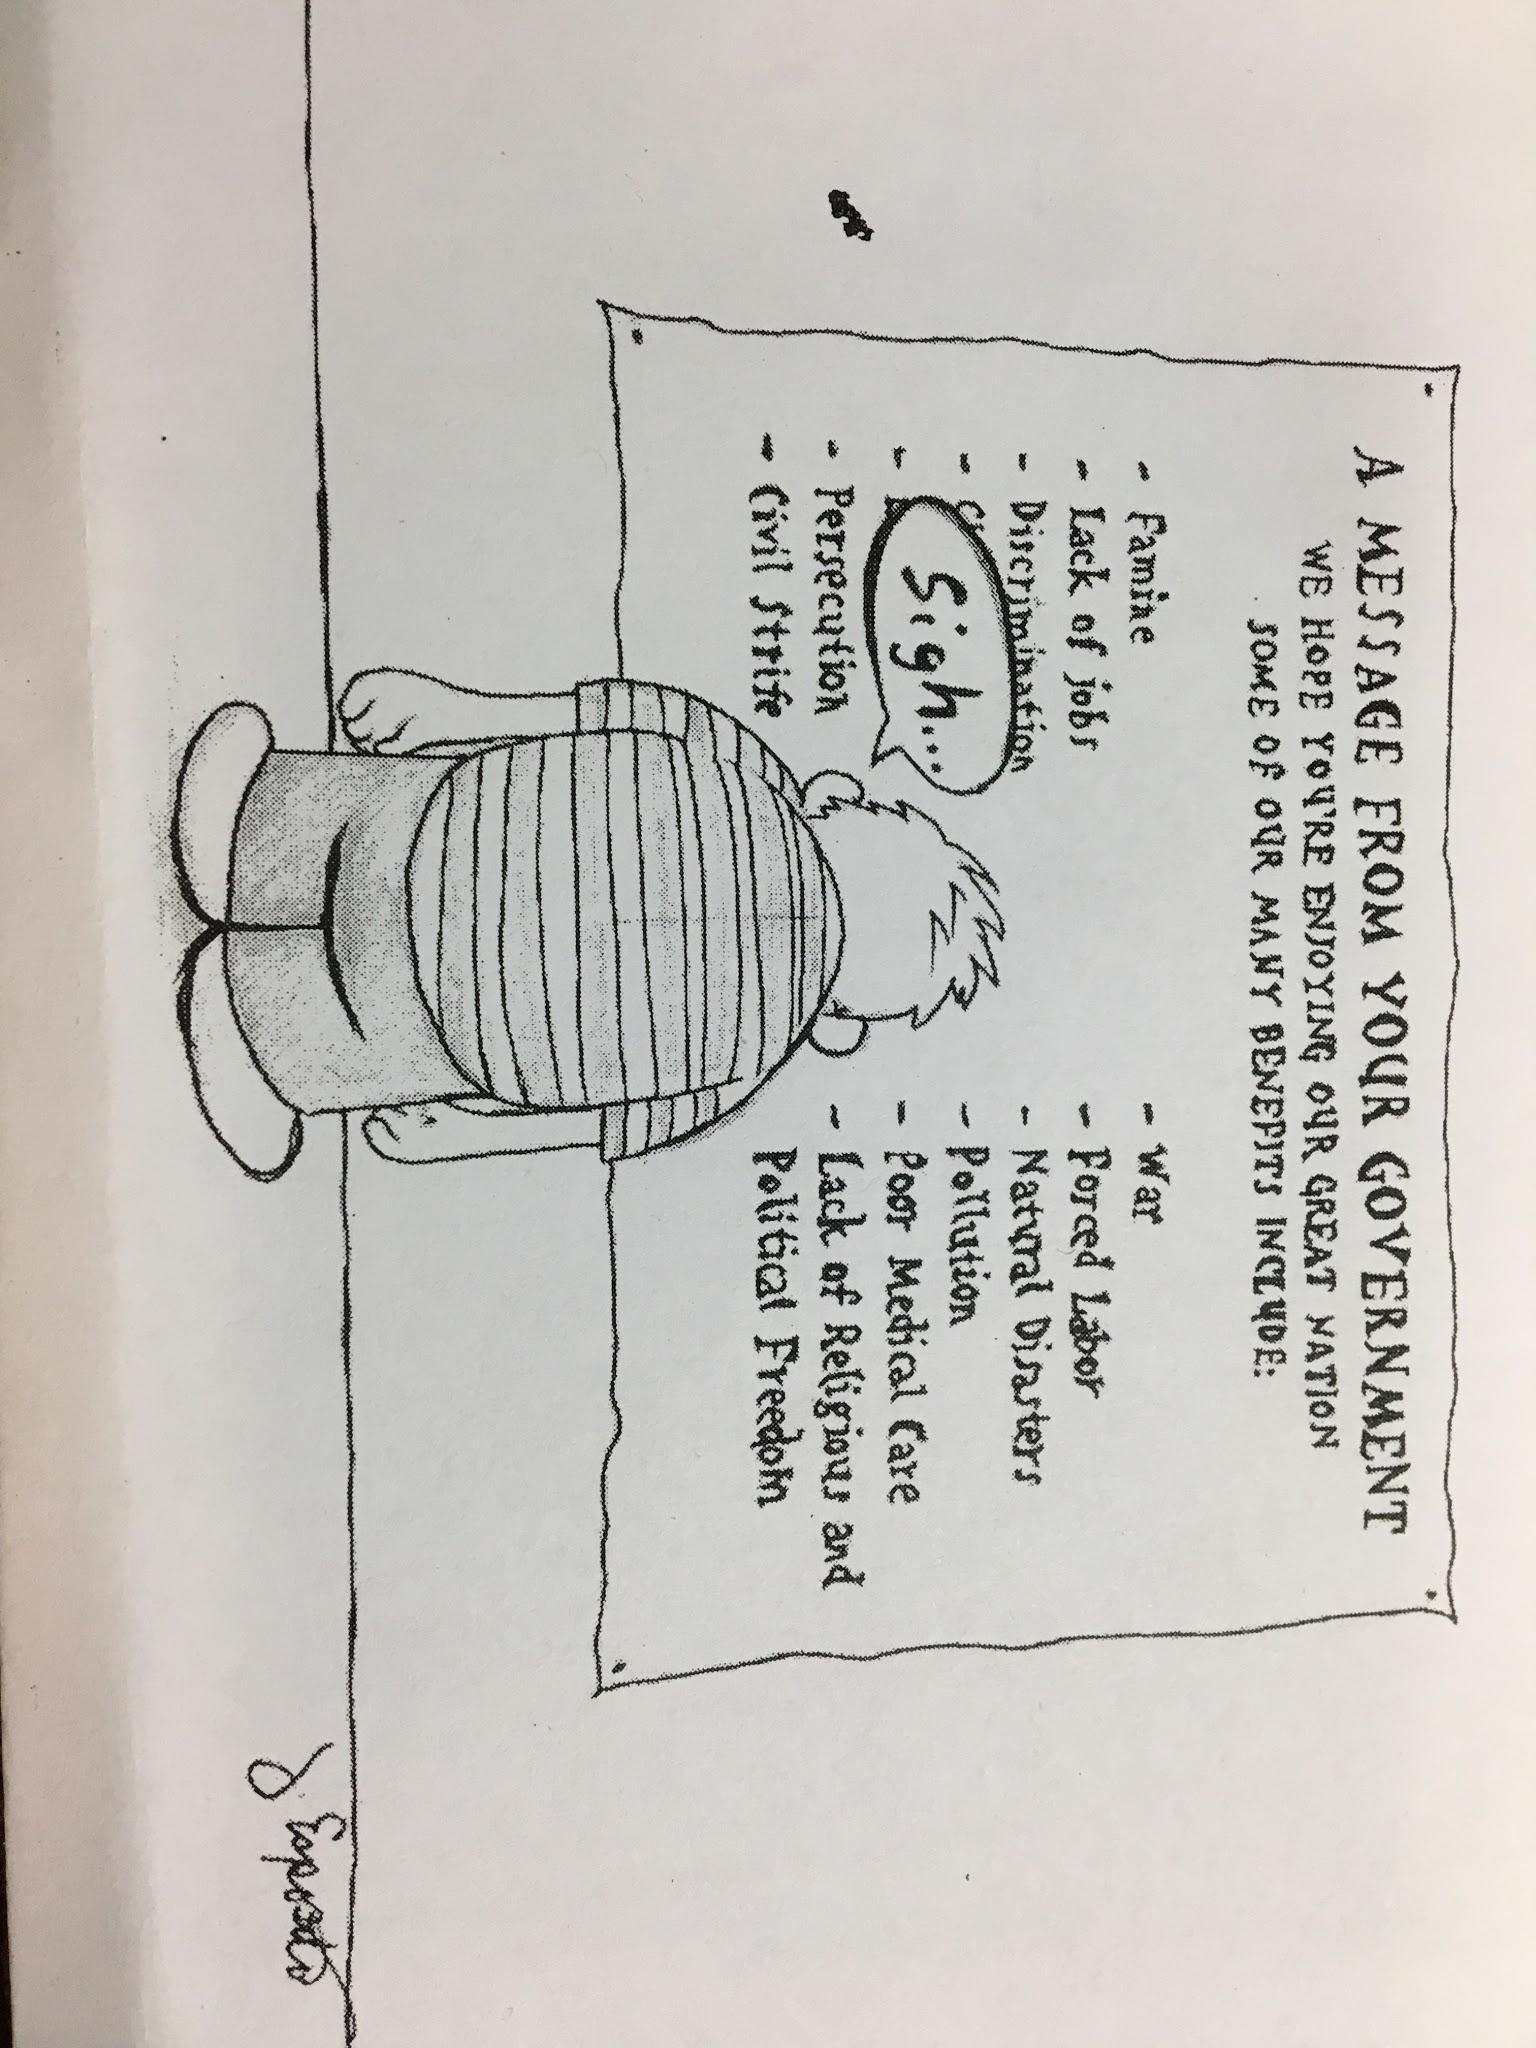 A MESSAGE FROM YOUR GOVERNMENT
WE HOPE YOU'RE ENJOYING OUR GREAT NATION
SOME OF OUR MANY BENEFITS INCLUDE:
- Famine
- Lack of jobs
- Discrimination
-
-
- Persecution
- Civil Strife
Sigh...
- War
- Forced Labor
- Natural Disasters
- Pollution
- Poor Medical Care
- Lack of Religious and
Political Freedom
Esposito